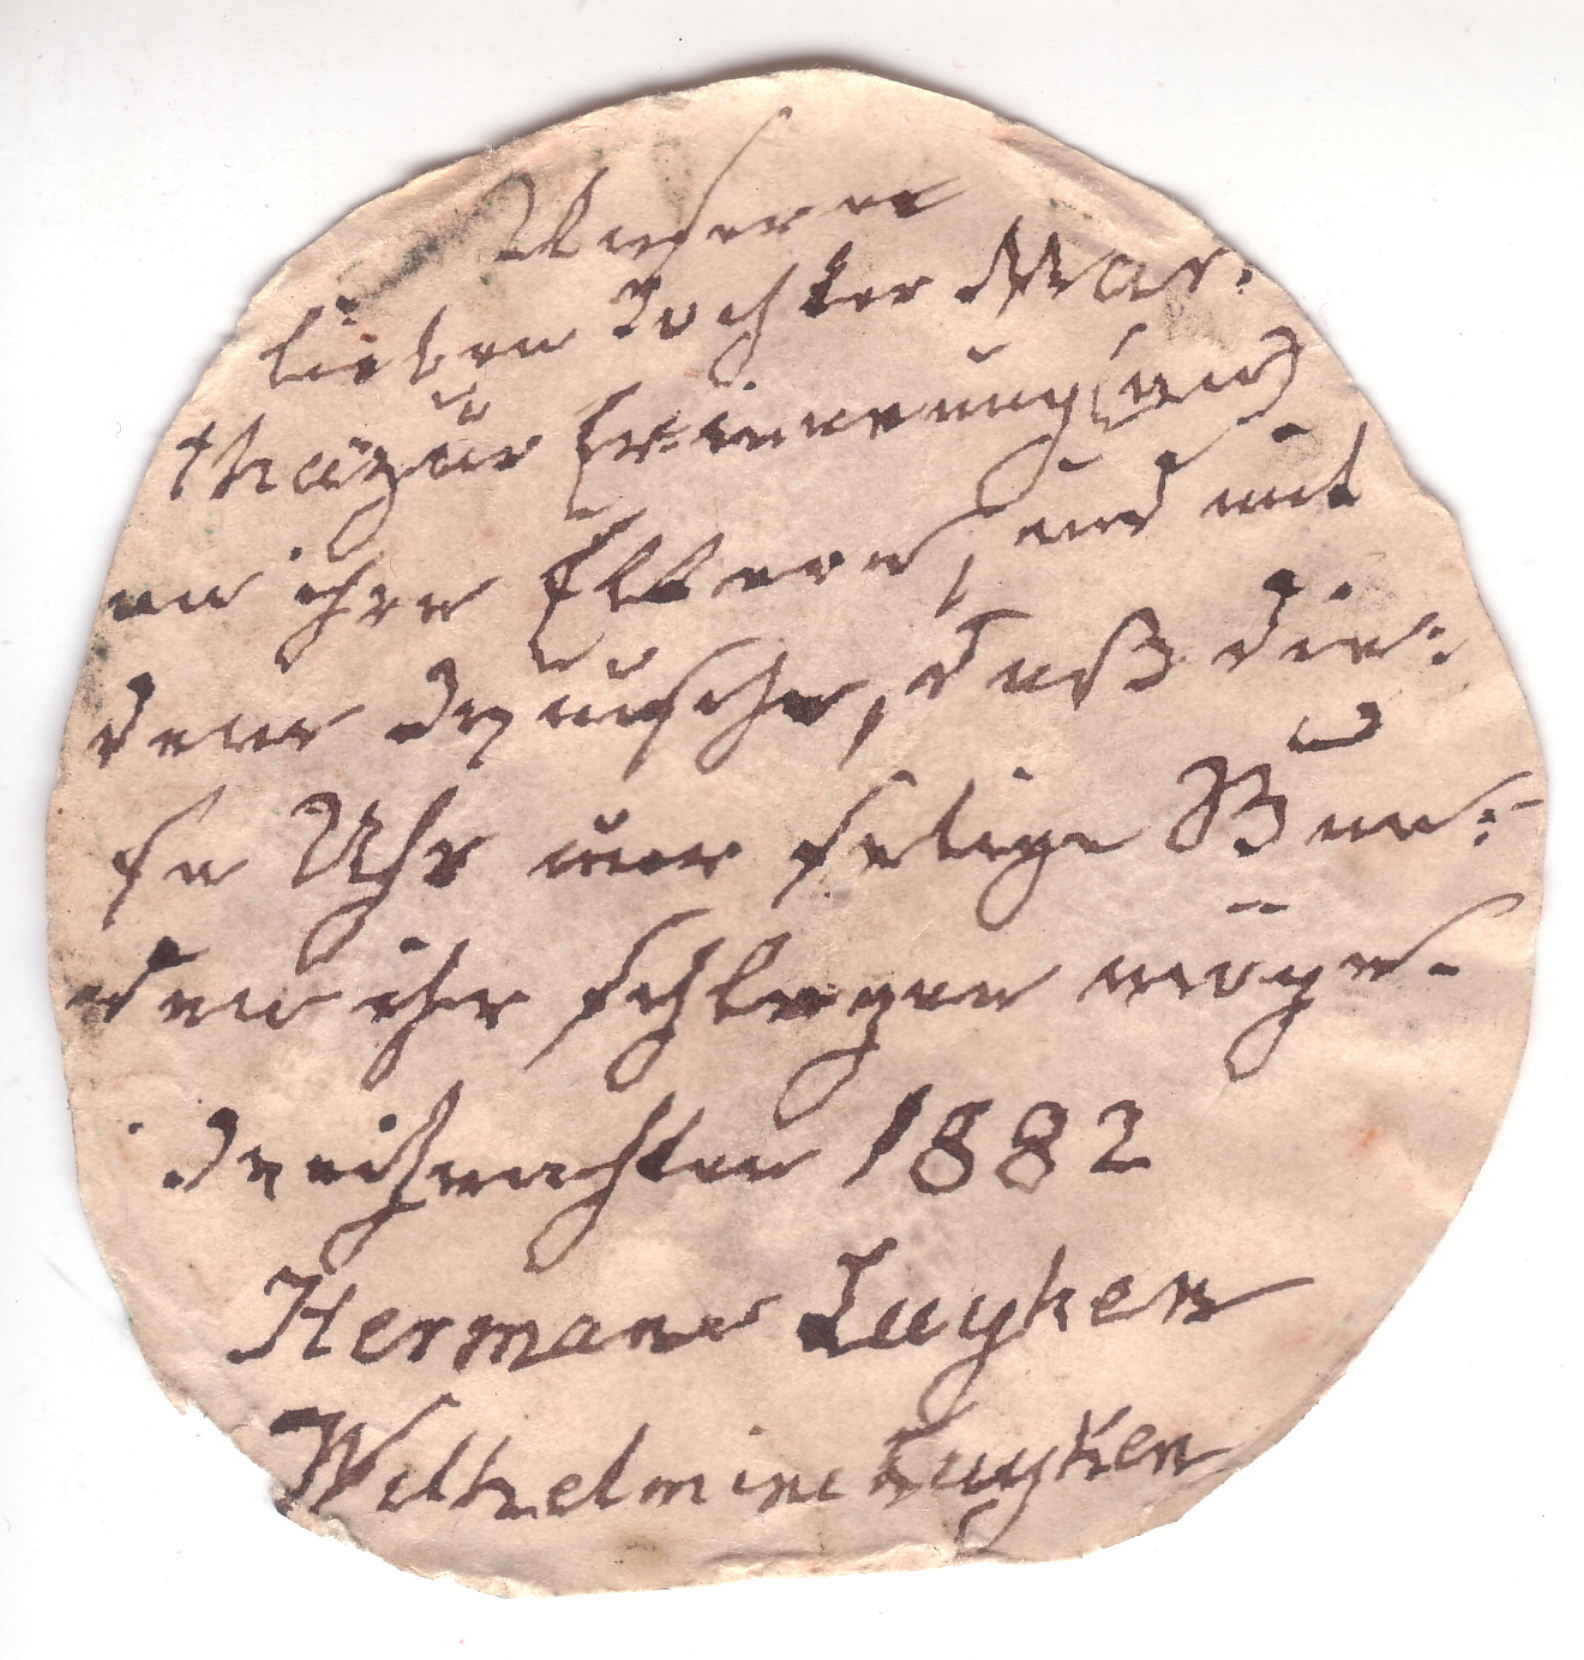 Unserer
lieben Tochter Mar=
tha zur Erinnerung (an)
an ihre Eltern, und mit
dem Wunsche, daß die=
se Uhr nur selige Stun=
den ihr schlagen möge.
Weihnachten 1882
Hermann Luyken
Wilhelmine Luyken